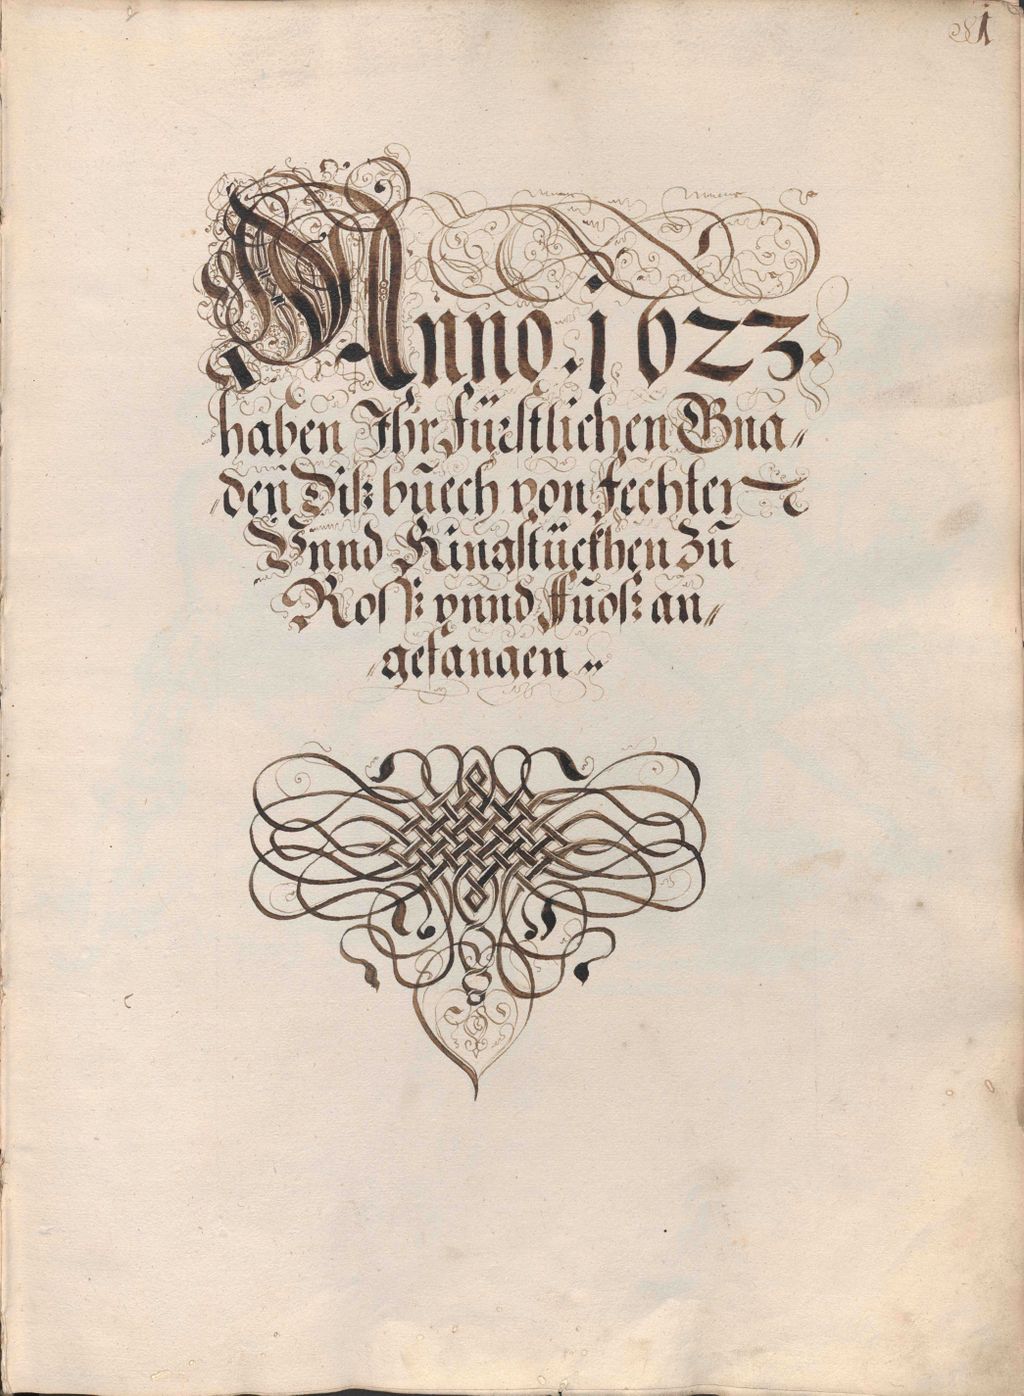 1
Anno. 1623.
haben Ihr Fürstlichen Gna„
„den Diß bŭech von fechter
Vnnd Ringstückhen Zŭ
Rosß vnnd Fŭoß an„
„gefangen „